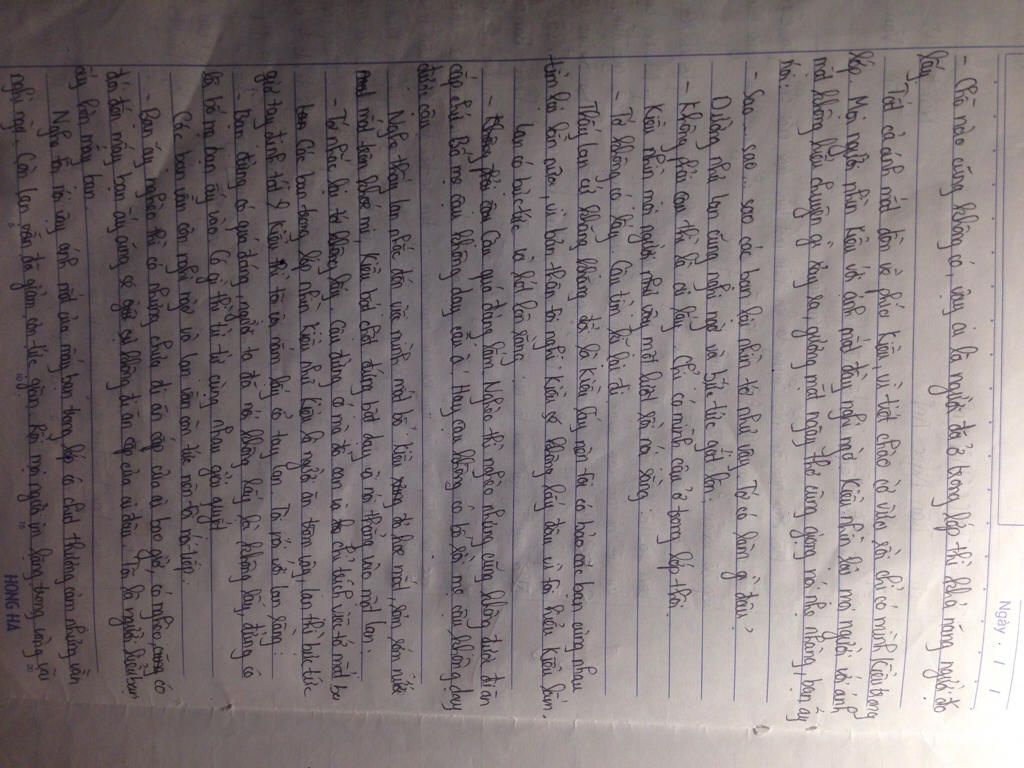 Ngày. / /
- Chỗ nào cũng không có, vậy ai là người đã ở trong lớp thì khả năng người đó
lấy
Tất cả ánh mắt dồn về phía Kiều, vì tiết chào cờ vừa rồi chỉ có mình Kiều trong
lớp. Mọi người nhìn Kiều với ánh mắt đầy nghi ngờ. Kiều nhìn lại mọi người với ánh
mắt không hiểu chuyện gì xảy ra, gương mặt ngây thơ cùng giọng nói nhỏ nhẹ, bạn ấy
nói:
- Sao... sao... sao các bạn lại nhìn tớ như vậy. Tớ có làm gì đâu,
Dường như Lan cũng nghi ngờ và bực tức gắt lên:
- Không phải cậu thì là ai lấy. Chỉ có mình cậu ở trong lớp thôi.
Kiều nhìn mọi người như vậy một lượt rồi nói rằng
- Tớ không có lấy. Cậu tìm kĩ lại đi.
Thấy Lan cứ khăng khăng đó là Kiều lấy nên tôi có bảo với bạn cùng nhau
tìm lại lần nữa, vì bản thân tôi nghĩ Kiều sẽ không lấy đâu vì tôi hiểu Kiều lắm.
Lan có bực tức và lớn lối rằng:
- Không phải cậu. Cậu quá đáng lắm. Nghèo thì nghèo nhưng cũng không được đi ăn
cắp chứ. Bố mẹ cậu không dạy cậu à. Hay cậu không có bố rồi mẹ cậu không dạy
được cậu.
Nghe thấy Lan nhắc đến với mình mất bố Kiều đỏ hoe mắt, rơm rớm nước
mắt trên khoé mi, Kiều bất chợt đứng bật dạy và nói thẳng vào mặt Lan:
- Tớ nhắc lại tớ không lấy. Cậu đừng có mà lôi cả bố tớ
Các bạn trong lớp nhìn Kiều như Kiều là người ăn trộm vậy, Lan thì bực tức
giơ tay định tát Kiều thì tôi có nắm lấy cổ tay Lan. Tôi nói với Lan rằng:
- Bạn đừng có quá đáng, người ta đã nói không lấy là không lấy, đừng có
lôi bố mẹ bạn ấy vào. Có gì thì từ từ cùng nhau giải quyết
Các bạn vẫn còn nghi ngờ và Lan vẫn còn tức nên tôi nói tiếp:
- Bạn ấy nghèo thì có nhưng chưa đi ăn cắp của ai bao giờ, có nghèo, cũng có
đói đến mấy bạn ấy cũng sẽ không đi ăn cắp của ai đâu. Tôi là người hiểu bạn
ấy hơn mấy bạn.
Nghe tôi nói vậy ánh mắt của mấy bạn trong lớp có chút thương cảm nhưng vẫn
nghi ngờ. Còn Lan vẫn đa giản, còn tức giận, bởi mọi người im lặng trong lòng với
HONG HA